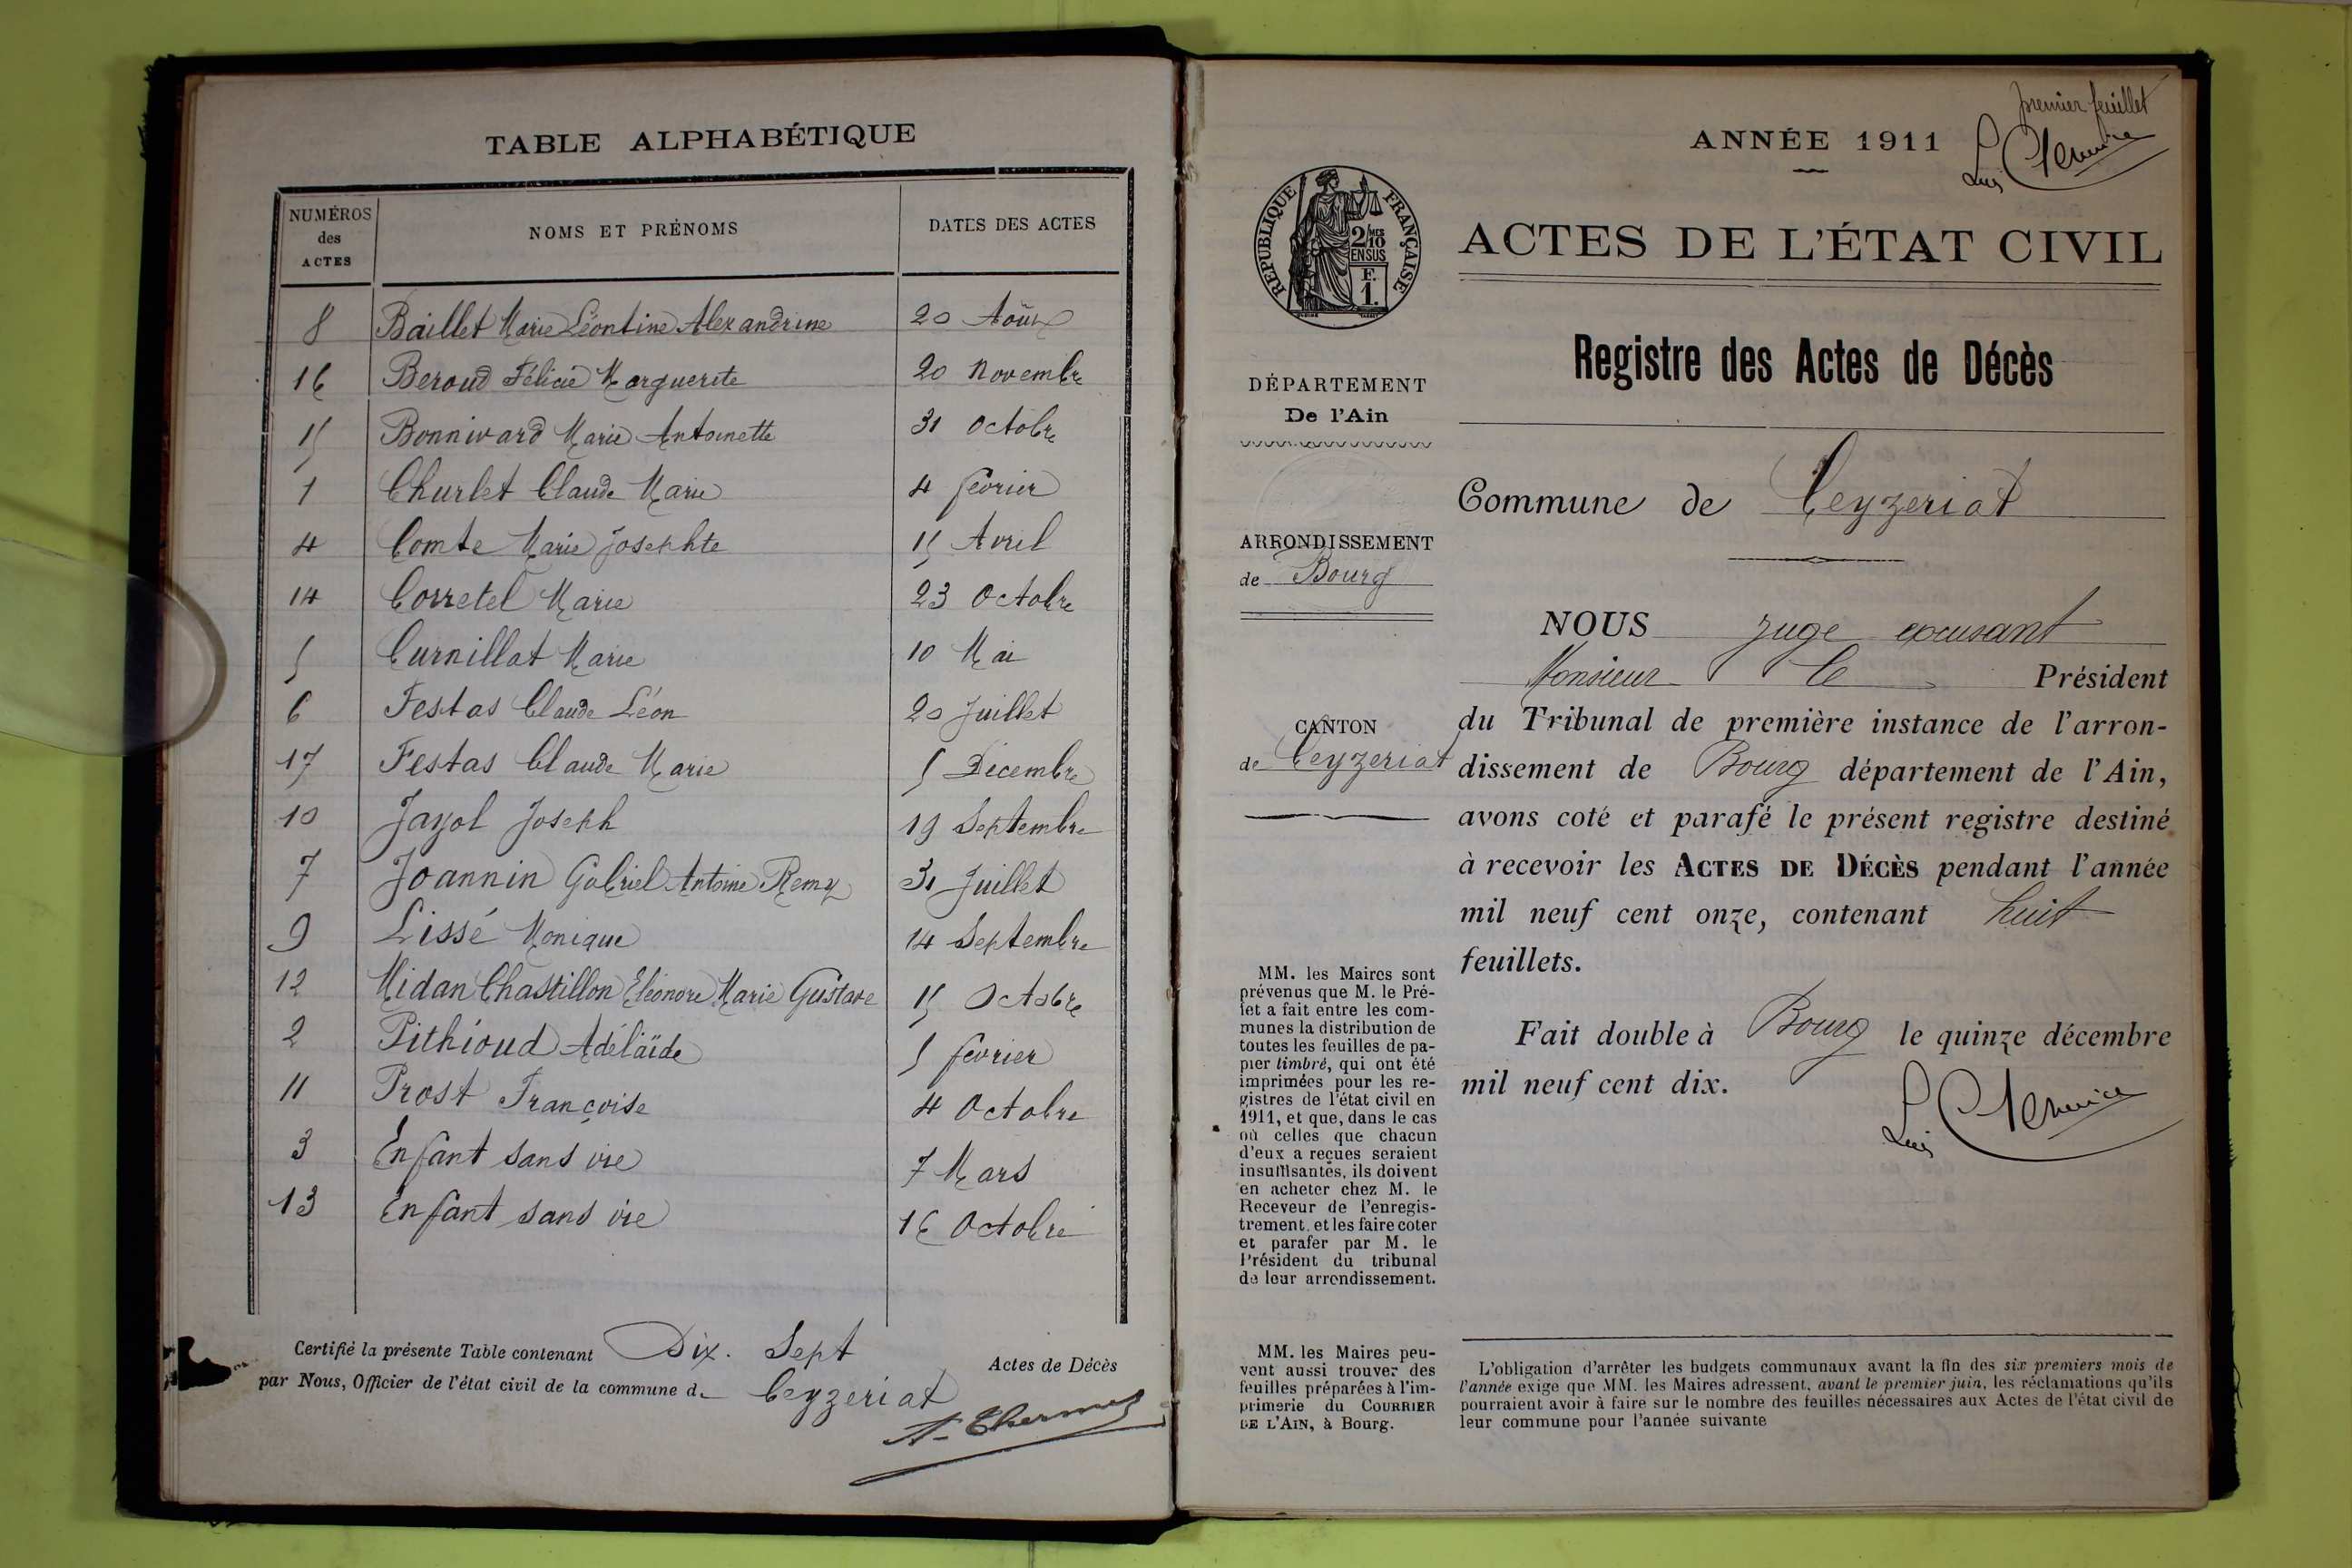 TABLE ALPHABÉTIQUE
NUMÉROS des ACTES NOMS ET PRÉNOMS DATES DES ACTES
8 Baillet Marie Léontine Alexandrine 20 Août
16 Beroud Félicie Marguerite 20 Novembre
15 Bonnivard Marie Antoinette 31 Octobre
1 Churlet Claude Marie 4 février
4 Comte Marie Josephte 15 Avril
14 Corretel Marie 23 Octobre
5 Curnillat Marie 10 Mai
6 Festas Claude Léon 20 Juillet
17 Festas Claude Marie 5 Décembre
10 Jayol Joseph 19 Septembre
7 Joannin Gabriel Antoine Remy 31 Juillet
9 Lissé Monique 14 Septembre
12 Midan Chastillon Eléonore Marie Gustave 15 Octobre
2 Pithioud Adélaïde 5 février
11 Prost Françoise 4 Octobre
3 Enfant sans vie 7 Mars
13 Enfant sans vie 16 Octobre
Certifié la présente Table contenant Dix. Sept Actes de Décès
par Nous, Officier de l'état civil de la commune de Ceyzeriat
premier feuillet
ANNÉE 1911
REPUBLIQUE FRANÇAISE
2/10 MES
EN SUS
F.
1.
ACTES DE L'ÉTAT CIVIL
Registre des Actes de Décès
DÉPARTEMENT
De l'Ain
Commune de Ceyzeriat
ARRONDISSEMENT
de Bourg
CANTON
de Ceyzeriat
NOUS juge excusant
Monsieur le Président
du Tribunal de première instance de l'arron-
dissement de Bourg département de l'Ain,
avons coté et parafé le présent registre destiné
à recevoir les ACTES DE DÉCÈS pendant l'année
mil neuf cent onze, contenant huit
feuillets.
Fait double à Bourg le quinze décembre
mil neuf cent dix.
MM. les Maires sont
prévenus que M. le Pré-
fet a fait entre les com-
munes la distribution de
toutes les feuilles de pa-
pier timbré, qui ont été
imprimées pour les re-
gistres de l'état civil en
1911, et que, dans le cas
où celles que chacun
d'eux a reçues seraient
insuffisantes, ils doivent
en acheter chez M. le
Receveur de l'enregis-
trement, et les faire coter
et parafer par M. le
Président du tribunal
de leur arrondissement.
MM. les Maires peu-
vent aussi trouver des
feuilles préparées à l'im-
primerie du COURRIER
DE L'AIN, à Bourg.
L'obligation d'arrêter les budgets communaux avant la fin des six premiers mois de
l'année exige que MM. les Maires adressent, avant le premier juin, les réclamations qu'ils
pourraient avoir à faire sur le nombre des feuilles nécessaires aux Actes de l'état civil de
leur commune pour l'année suivante